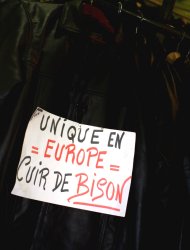 UNIQUE EN
= EUROPE =
CUIR DE BISON